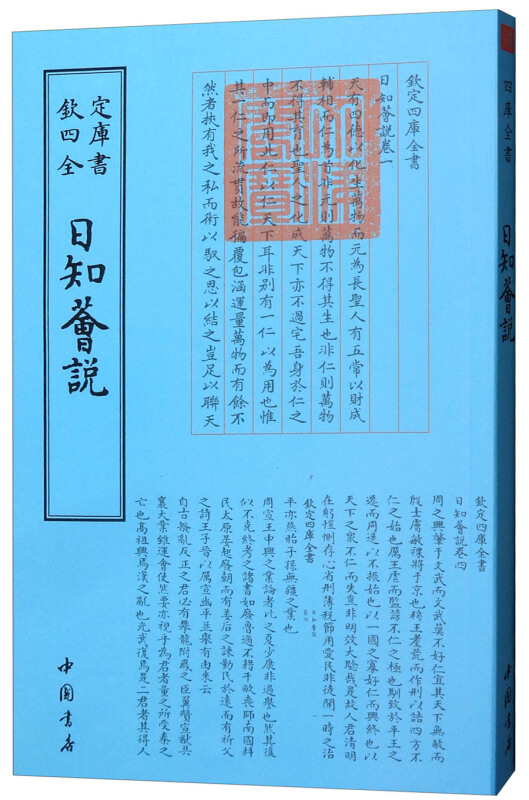 欽定
四庫
全書
日知薈説
中國書店
欽定四庫全書
日知薈說卷一
天有四德以化生萬物而元為長聖人有五常以財成
輔相而仁為首非元則萬物不得其生也非仁則萬物
不得其育也聖人之化成天下亦不過宅吾身於仁之
中而即用此仁以仁天下耳非別有一仁以為用也惟
其一仁之所流貫故能徧覆包涵運量萬物而有餘不
然者挾有我之私而術以馭之恩以結之豈足以聯天
欽定四庫全書
日知薈說卷四
周之興肇于文武而文武莫不好仁宜其天下無敵而
殷士膚敏祼將于京也穆王耄荒而作刑以詰四方不
仁之始也厲王虐而監謗不仁之極也馴致於平王之
遷而周遂以不振始也以一國之寡好仁而興終也以
天下之眾不仁而失豈非明效大驗哉是故人君清明
在躬愷惻存心省刑薄稅節用愛民非徒開一時之治
欽定四庫全書
平亦燕貽子孫無疆之業也
周宣王中興之業論者比之夏少康非過譽也然其後
似不克終考之諸書如廢魯適不措千畝喪師南國料
民太原晏起廢朝而有姜后之諫勤民於遠而有祈父
之詩王子晉以厲宣幽平並舉有由來云
自古撥亂反正之君必有攀龍附鳳之臣翼贊宣猷共
襄大業雖運會使然要亦視乎為君者量之所受秦之
亡也高祖興焉漢之亂也光武復焉是二君者其得人
四庫全書
日知薈説
中國書店